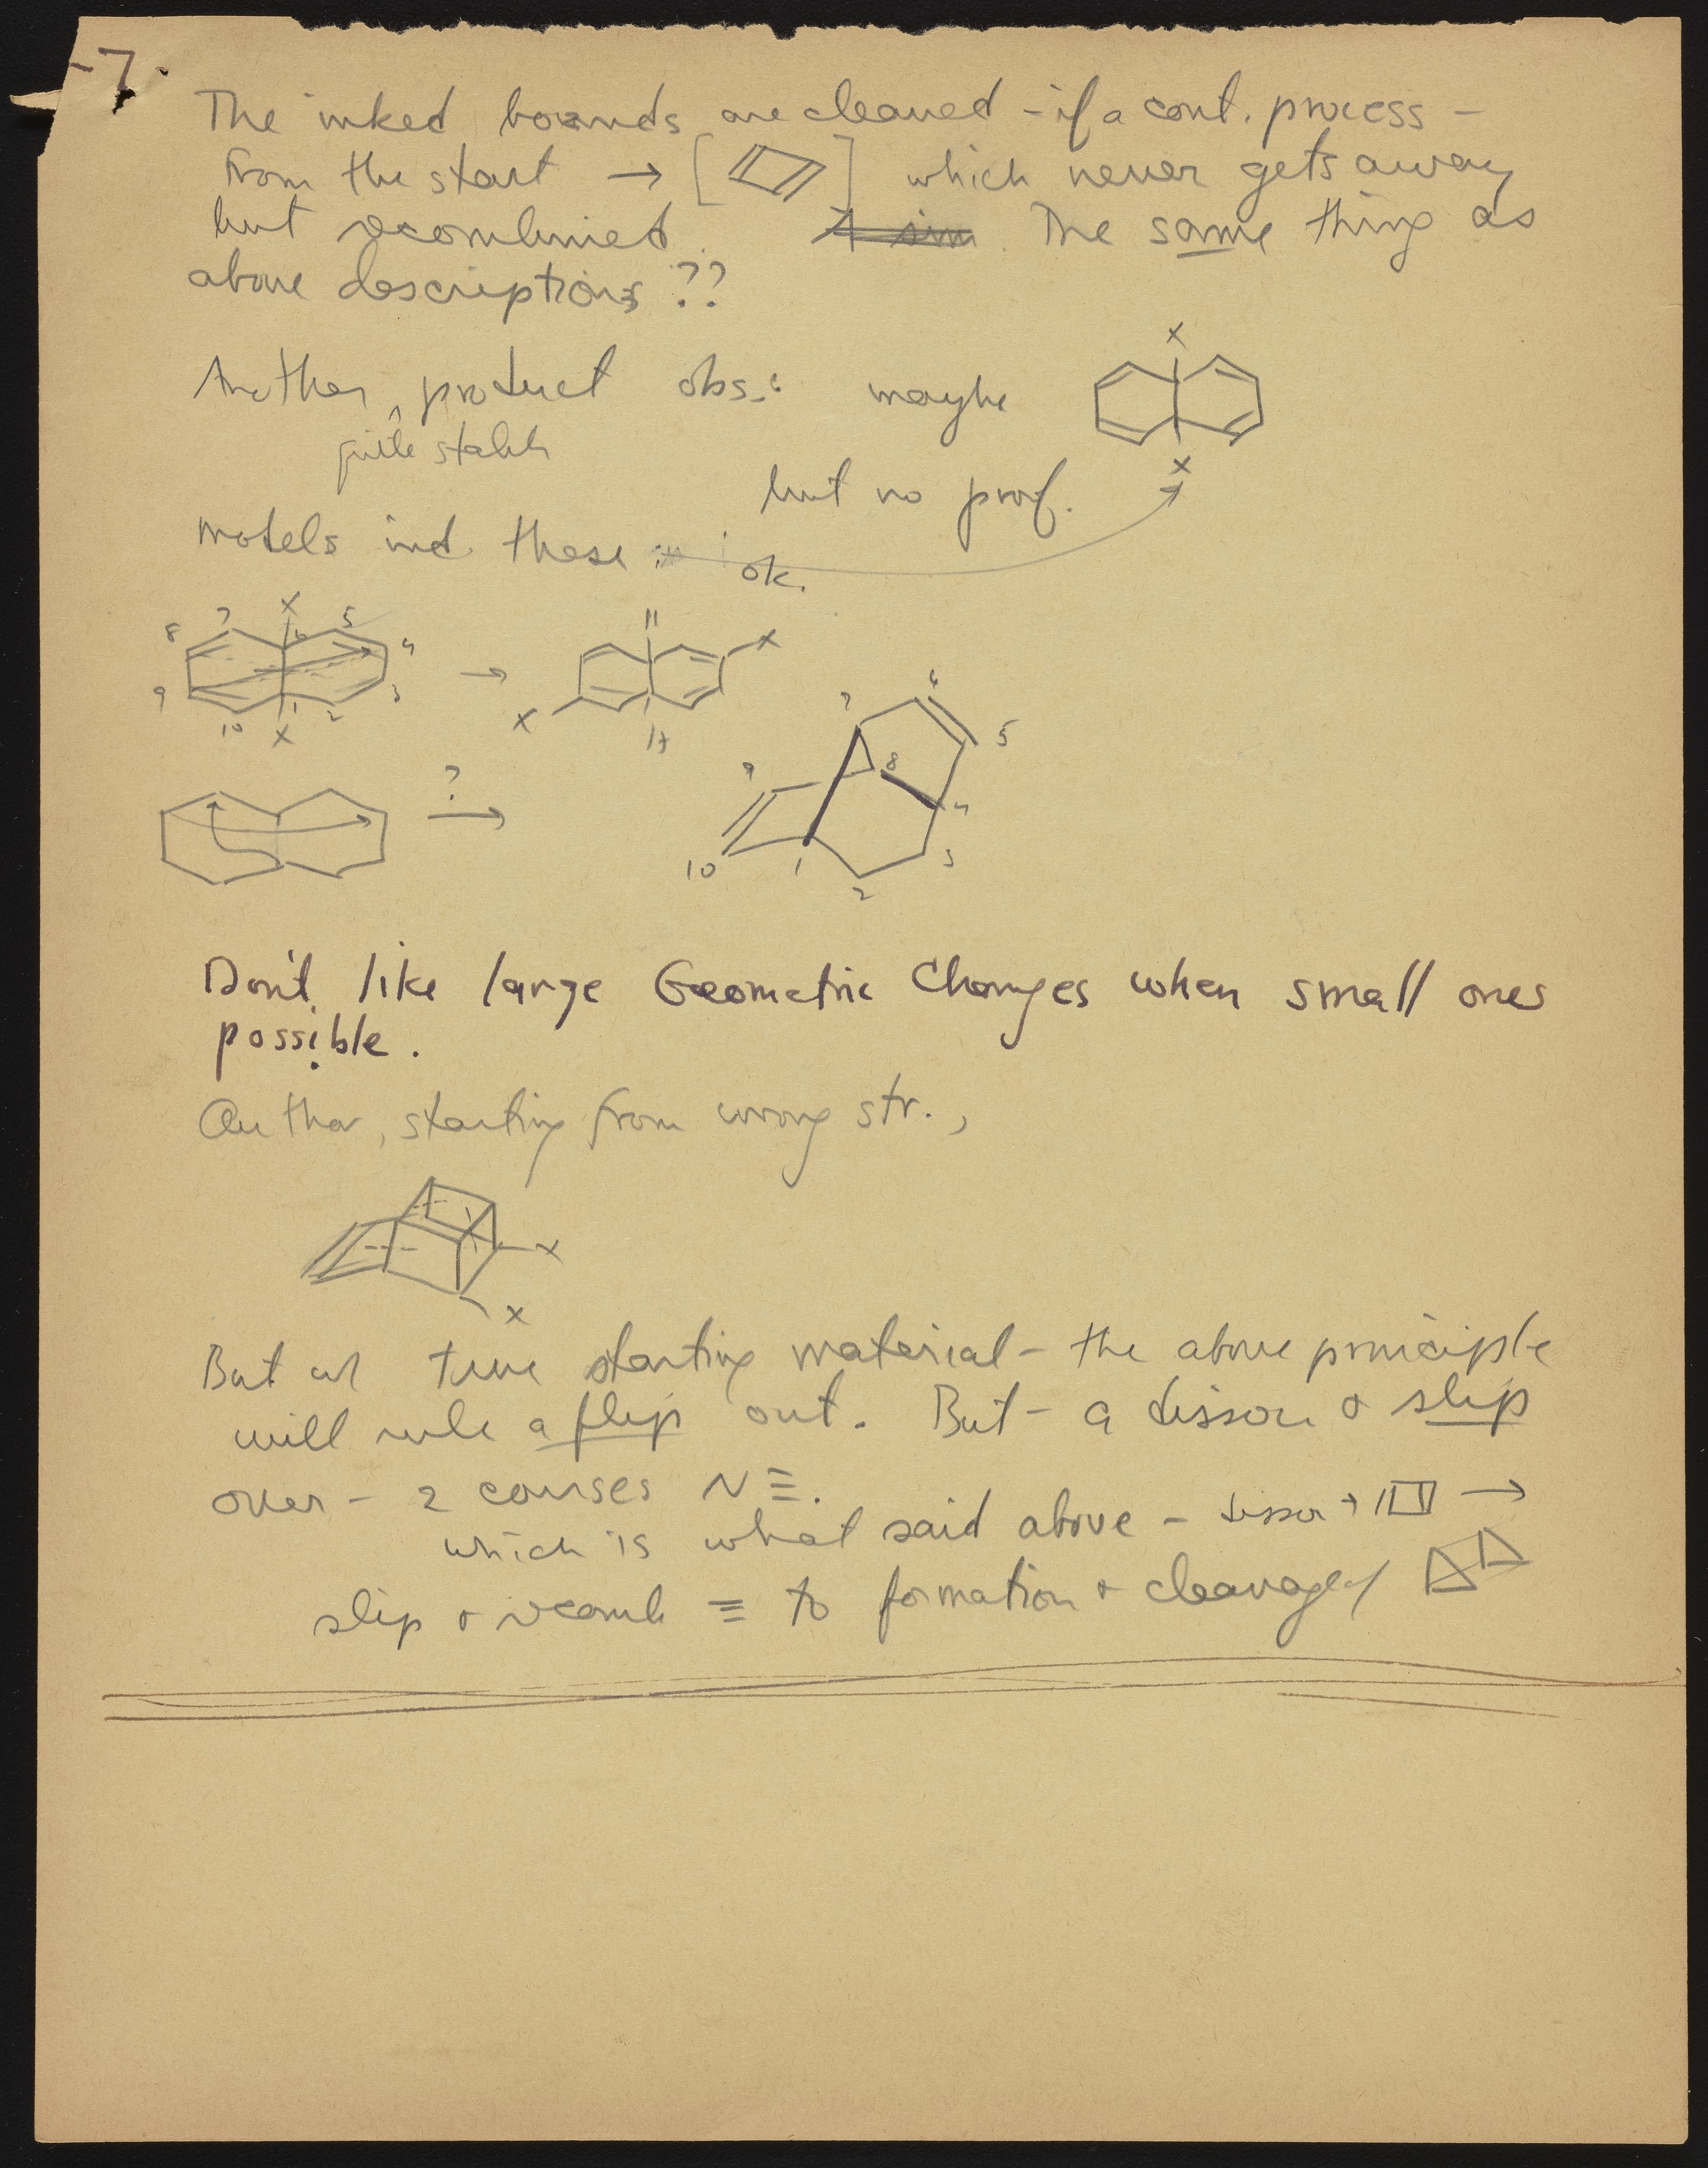 -7.
The inked bounds are cleaved - if a cont. process -
from the start → [ ] which never gets away
but recombined. The same thing as
above descriptions ??
Another product obs.: maybe
quite stable
X
X
but no prof.
models ind. these: ok.
8 7 X 6 5 4
9 10 X 1 2 3
→
11 X
X 17
? →
7 6 5
9 8 4
10 1 2 3
Don't like large Geometric Changes when small ones
possible.
Author, starting from wrong str.,
X
X
But w/ true starting material - the above principle
will rule a flip out. But - a dissoc & slip
over - 2 courses ~ ≡.
which is what said above - dissoc → →
slip & recomb ≡ to formation & cleavage of